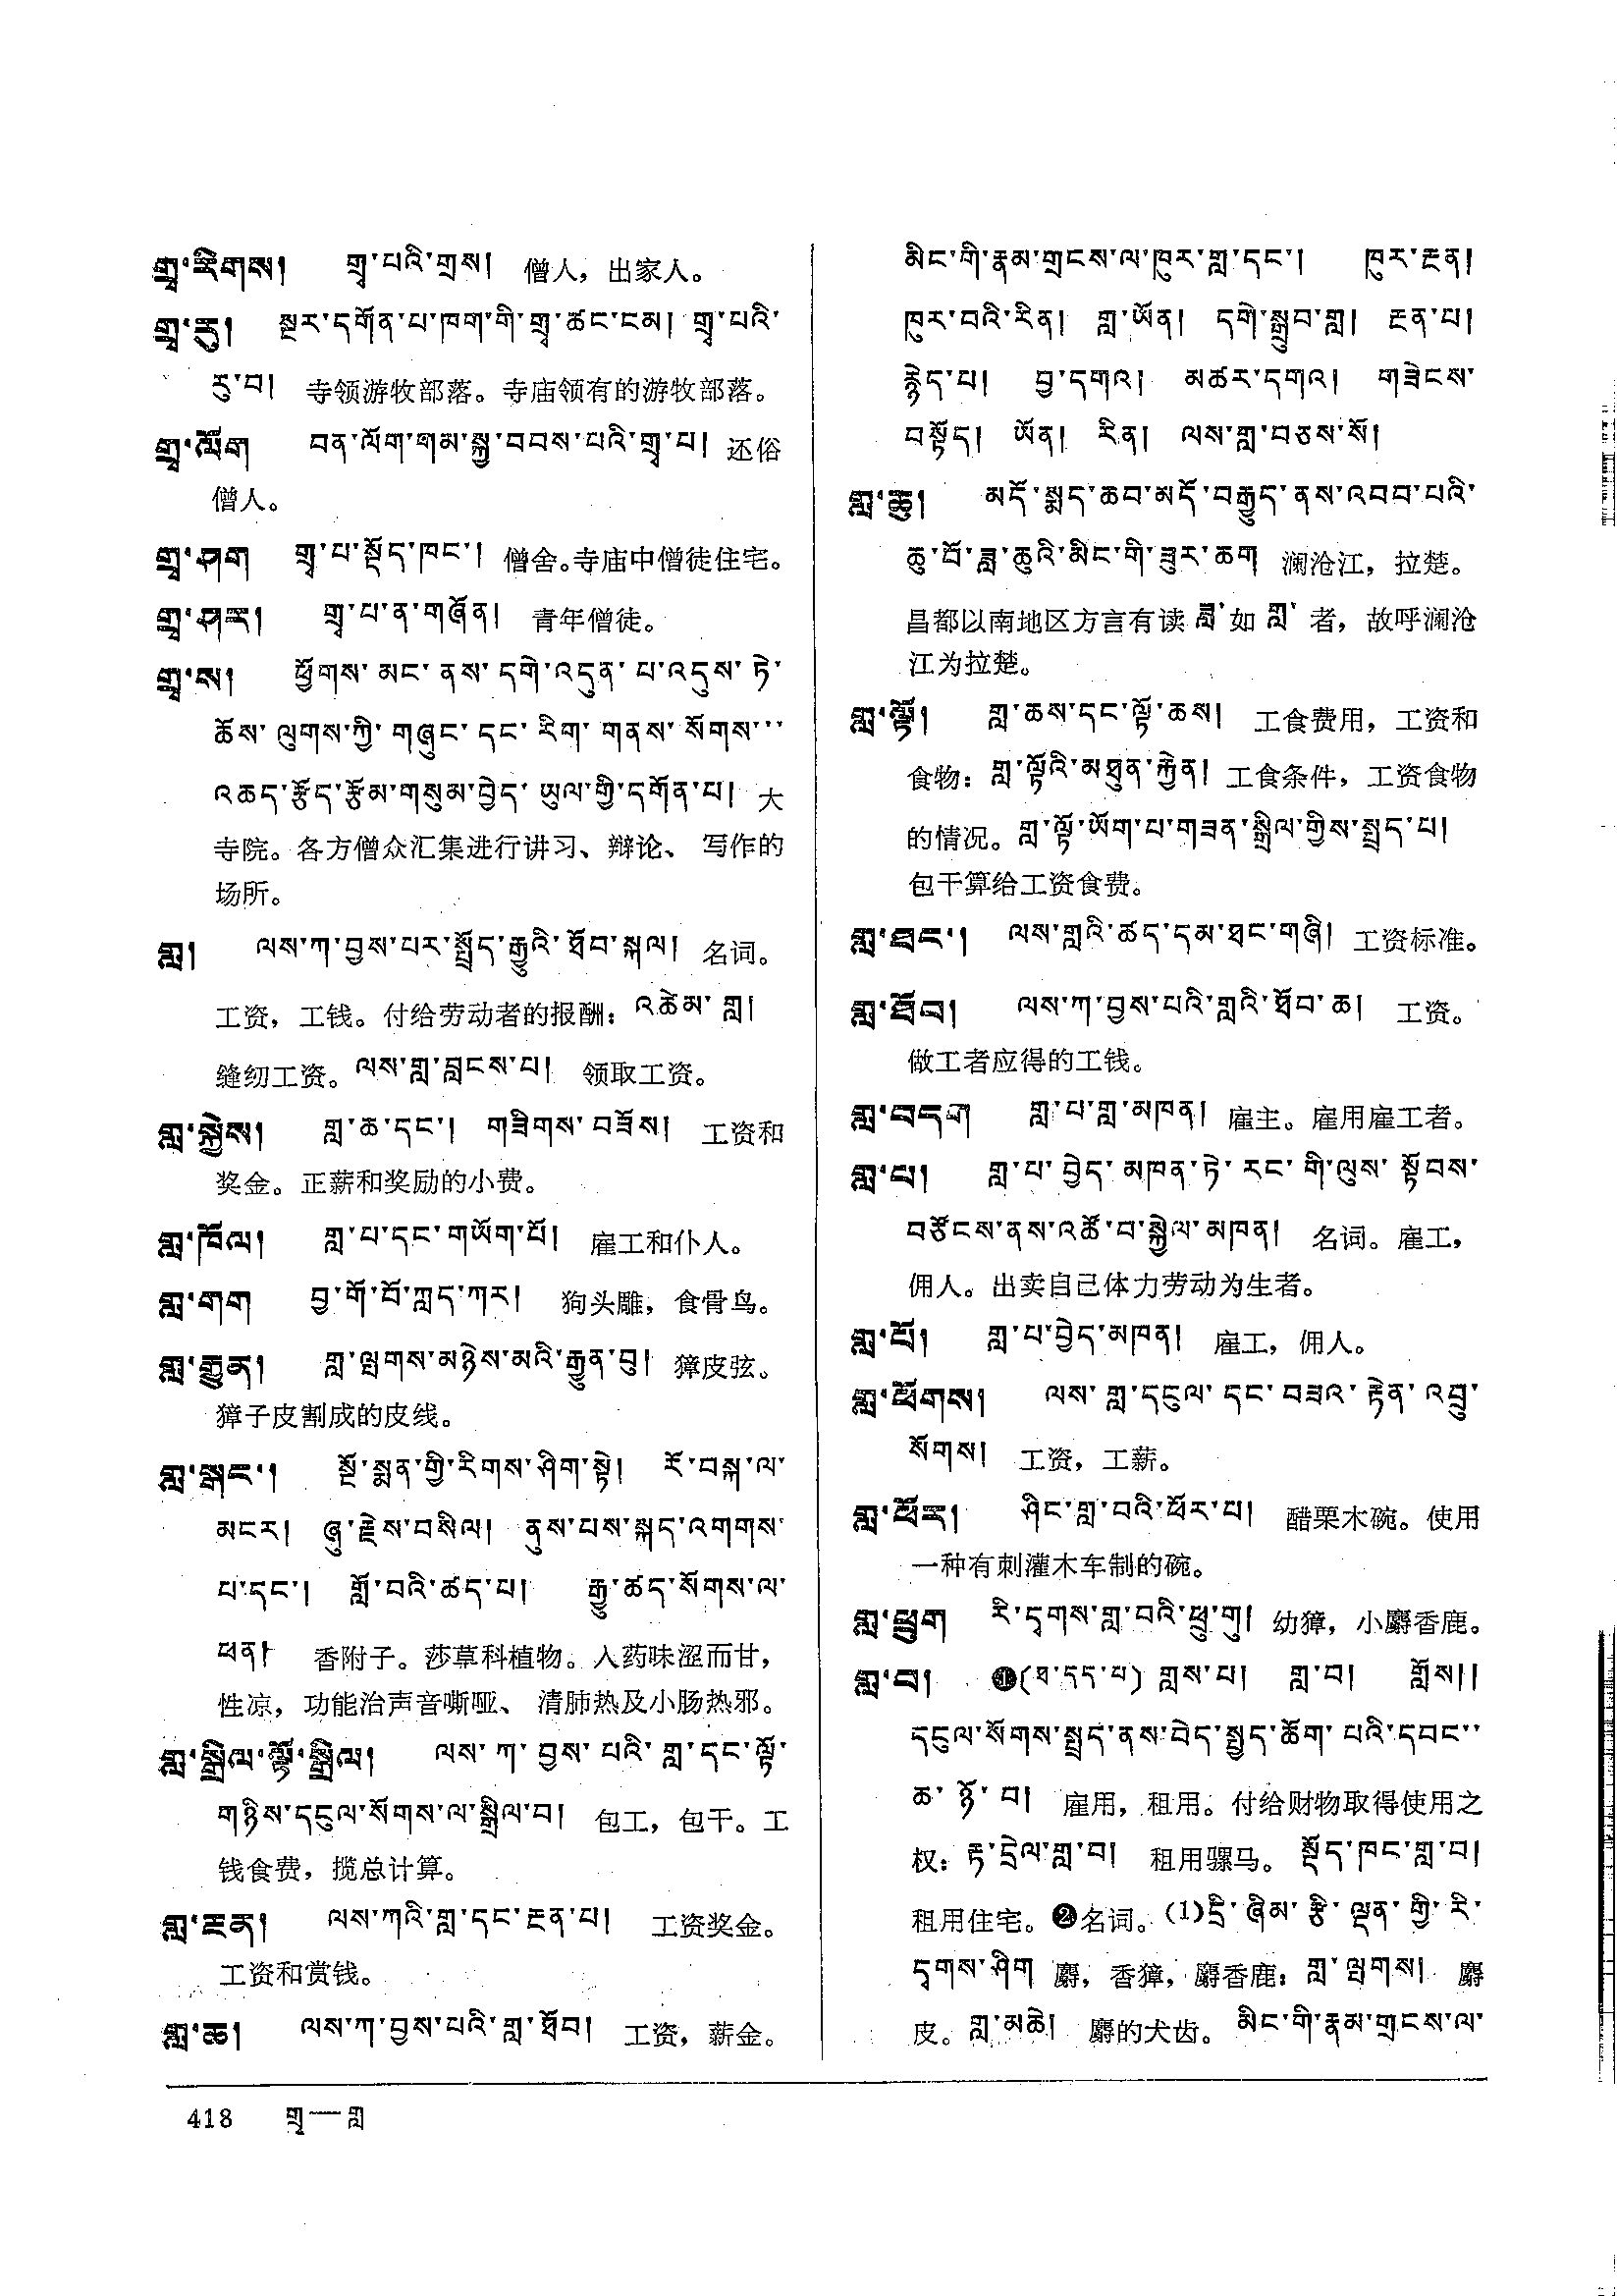 གྲྭ་རིགས། གྲྭ་པའི་གྲས། 僧人，出家人。
གྲྭ་རུ། སྔར་དགོན་པ་ཁག་གི་གྲྭ་ཚང་ངམ། གྲྭ་པའི་
རུ་བ། 寺领游牧部落。寺庙领有的游牧部落。
གྲྭ་ལོག བན་ལོག་གམ་སྐྱ་བབས་པའི་གྲྭ་པ། 还俗
僧人。
གྲྭ་ཤག གྲྭ་པ་སྡོད་ཁང་། 僧舍。寺庙中僧徒住宅。
གྲྭ་ཤར། གྲྭ་པ་ན་གཞོན། 青年僧徒。
གྲྭ་ས། ཕྱོགས་མང་ནས་དགེ་འདུན་པ་འདུས་ཏེ་
ཆོས་ལུགས་ཀྱི་གཞུང་དང་རིག་གནས་སོགས་་་
འཆད་རྩོད་རྩོམ་གསུམ་བྱེད་ཡུལ་གྱི་དགོན་པ། 大
寺院。各方僧众汇集进行讲习、辩论、写作的
场所。
གླ། ལས་ཀ་བྱས་པར་སྤྲོད་རྒྱུའི་ཐོབ་སྐལ། 名词。
工资，工钱。付给劳动者的报酬：འཚེམ་གླ།
缝纫工资。ལས་གླ་བླངས་པ། 领取工资。
གླ་སྐྱེས། གླ་ཆ་དང་། གཟིགས་བཟོས། 工资和
奖金。正薪和奖励的小费。
གླ་ཁོལ། གླ་པ་དང་གཡོག་པོ། 雇工和仆人。
གླ་གག བྱ་གོ་བོ་ཀླད་ཀར། 狗头雕，食骨鸟。
གླ་རྒྱུན། གླ་ལྤགས་མཉེས་མའི་རྒྱུན་བུ། 獐皮弦。
獐子皮割成的皮线。
གླ་སྒང་། སྔོ་སྨན་གྱི་རིགས་ཤིག་སྟེ། རོ་བསྐ་ལ་
མངར། ཞུ་རྗེས་བསིལ། ནུས་པས་སྐད་འགགས་
པ་དང་། གློ་བའི་ཚད་པ། རྒྱུ་ཚད་སོགས་ལ་
ཕན། 香附子。莎草科植物。入药味涩而甘，
性凉，功能治声音嘶哑、清肺热及小肠热邪。
གླ་སྒྲིལ་ལྟོ་སྒྲིལ། ལས་ཀ་བྱས་པའི་གླ་དང་ལྟོ་
གཉིས་དངུལ་སོགས་ལ་སྒྲིལ་བ། 包工，包干。工
钱食费，揽总计算。
གླ་རྔན། ལས་ཀའི་གླ་དང་རྔན་པ། 工资奖金。
工资和赏钱。
གླ་ཆ། ལས་ཀ་བྱས་པའི་གླ་ཐོབ། 工资，薪金。
མིང་གི་རྣམ་གྲངས་ལ་ཁུར་གླ་དང་། ཁུར་རྔན།
ཁུར་བའི་རིན། གླ་ཡོན། དགེ་སྒྲུབ་གླ། རྔན་པ།
རྙེད་པ། བྱ་དགའ། མཚར་དགའ། གཟེངས་
བསྟོད། ཡོན། རིན། ལས་གླ་བཅས་སོ།
གླ་ཆུ། མདོ་སྨད་ཆབ་མདོ་བརྒྱུད་ནས་འབབ་པའི་
ཆུ་བོ་ཟླ་ཆུའི་མིང་གི་ཟུར་ཆག 澜沧江，拉楚。
昌都以南地区方言有读 ཟླ་ 如 གླ་ 者，故呼澜沧
江为拉楚。
གླ་ལྟོ། གླ་ཆས་དང་ལྟོ་ཆས། 工食费用，工资和
食物：གླ་ལྟོའི་མཐུན་རྐྱེན། 工食条件，工资食物
的情况。གླ་ལྟོ་ཡོག་པ་གཟན་སྒྲིལ་གྱིས་སྤྲད་པ།
包干算给工资食费。
གླ་ཐང་། ལས་གླའི་ཚད་དམ་ཐང་གཞི། 工资标准。
གླ་ཐོབ། ལས་ཀ་བྱས་པའི་གླའི་ཐོབ་ཆ། 工资。
做工者应得的工钱。
གླ་བདག གླ་པ་གླ་མཁན། 雇主。雇用雇工者。
གླ་པ། གླ་པ་བྱེད་མཁན་ཏེ་རང་གི་ལུས་སྟོབས་
བཙོངས་ནས་འཚོ་བ་སྐྱེལ་མཁན། 名词。雇工，
佣人。出卖自己体力劳动为生者。
གླ་པོ། གླ་པ་བྱེད་མཁན། 雇工，佣人。
གླ་ཕོགས། ལས་གླ་དངུལ་དང་བཟའ་རྟེན་འབྲུ་
སོགས། 工资，工薪。
གླ་ཕོར། ཤིང་གླ་བའི་ཕོར་པ། 醋栗木碗。使用
一种有刺灌木车制的碗。
གླ་ཕྲུག རི་དྭགས་གླ་བའི་ཕྲུ་གུ། 幼獐，小麝香鹿。
གླ་བ། ❶(ཐ་དད་པ) གླས་པ། གླ་བ། གློས།།
དངུལ་སོགས་སྤྲད་ནས་བེད་སྤྱད་ཆོག་པའི་དབང་་
ཆ་ཉོ་བ། 雇用，租用。付给财物取得使用之
权：རྟ་དྲེལ་གླ་བ། 租用骡马。སྡོད་ཁང་གླ་བ།
租用住宅。❷名词。(1)དྲི་ཞིམ་རྩི་ལྡན་གྱི་རི་
དྭགས་ཤིག 麝，香獐，麝香鹿：གླ་ལྤགས། 麝
皮。གླ་མཆེ། 麝的犬齿。མིང་གི་རྣམ་གྲངས་ལ་
418 གྲྭ—གླ